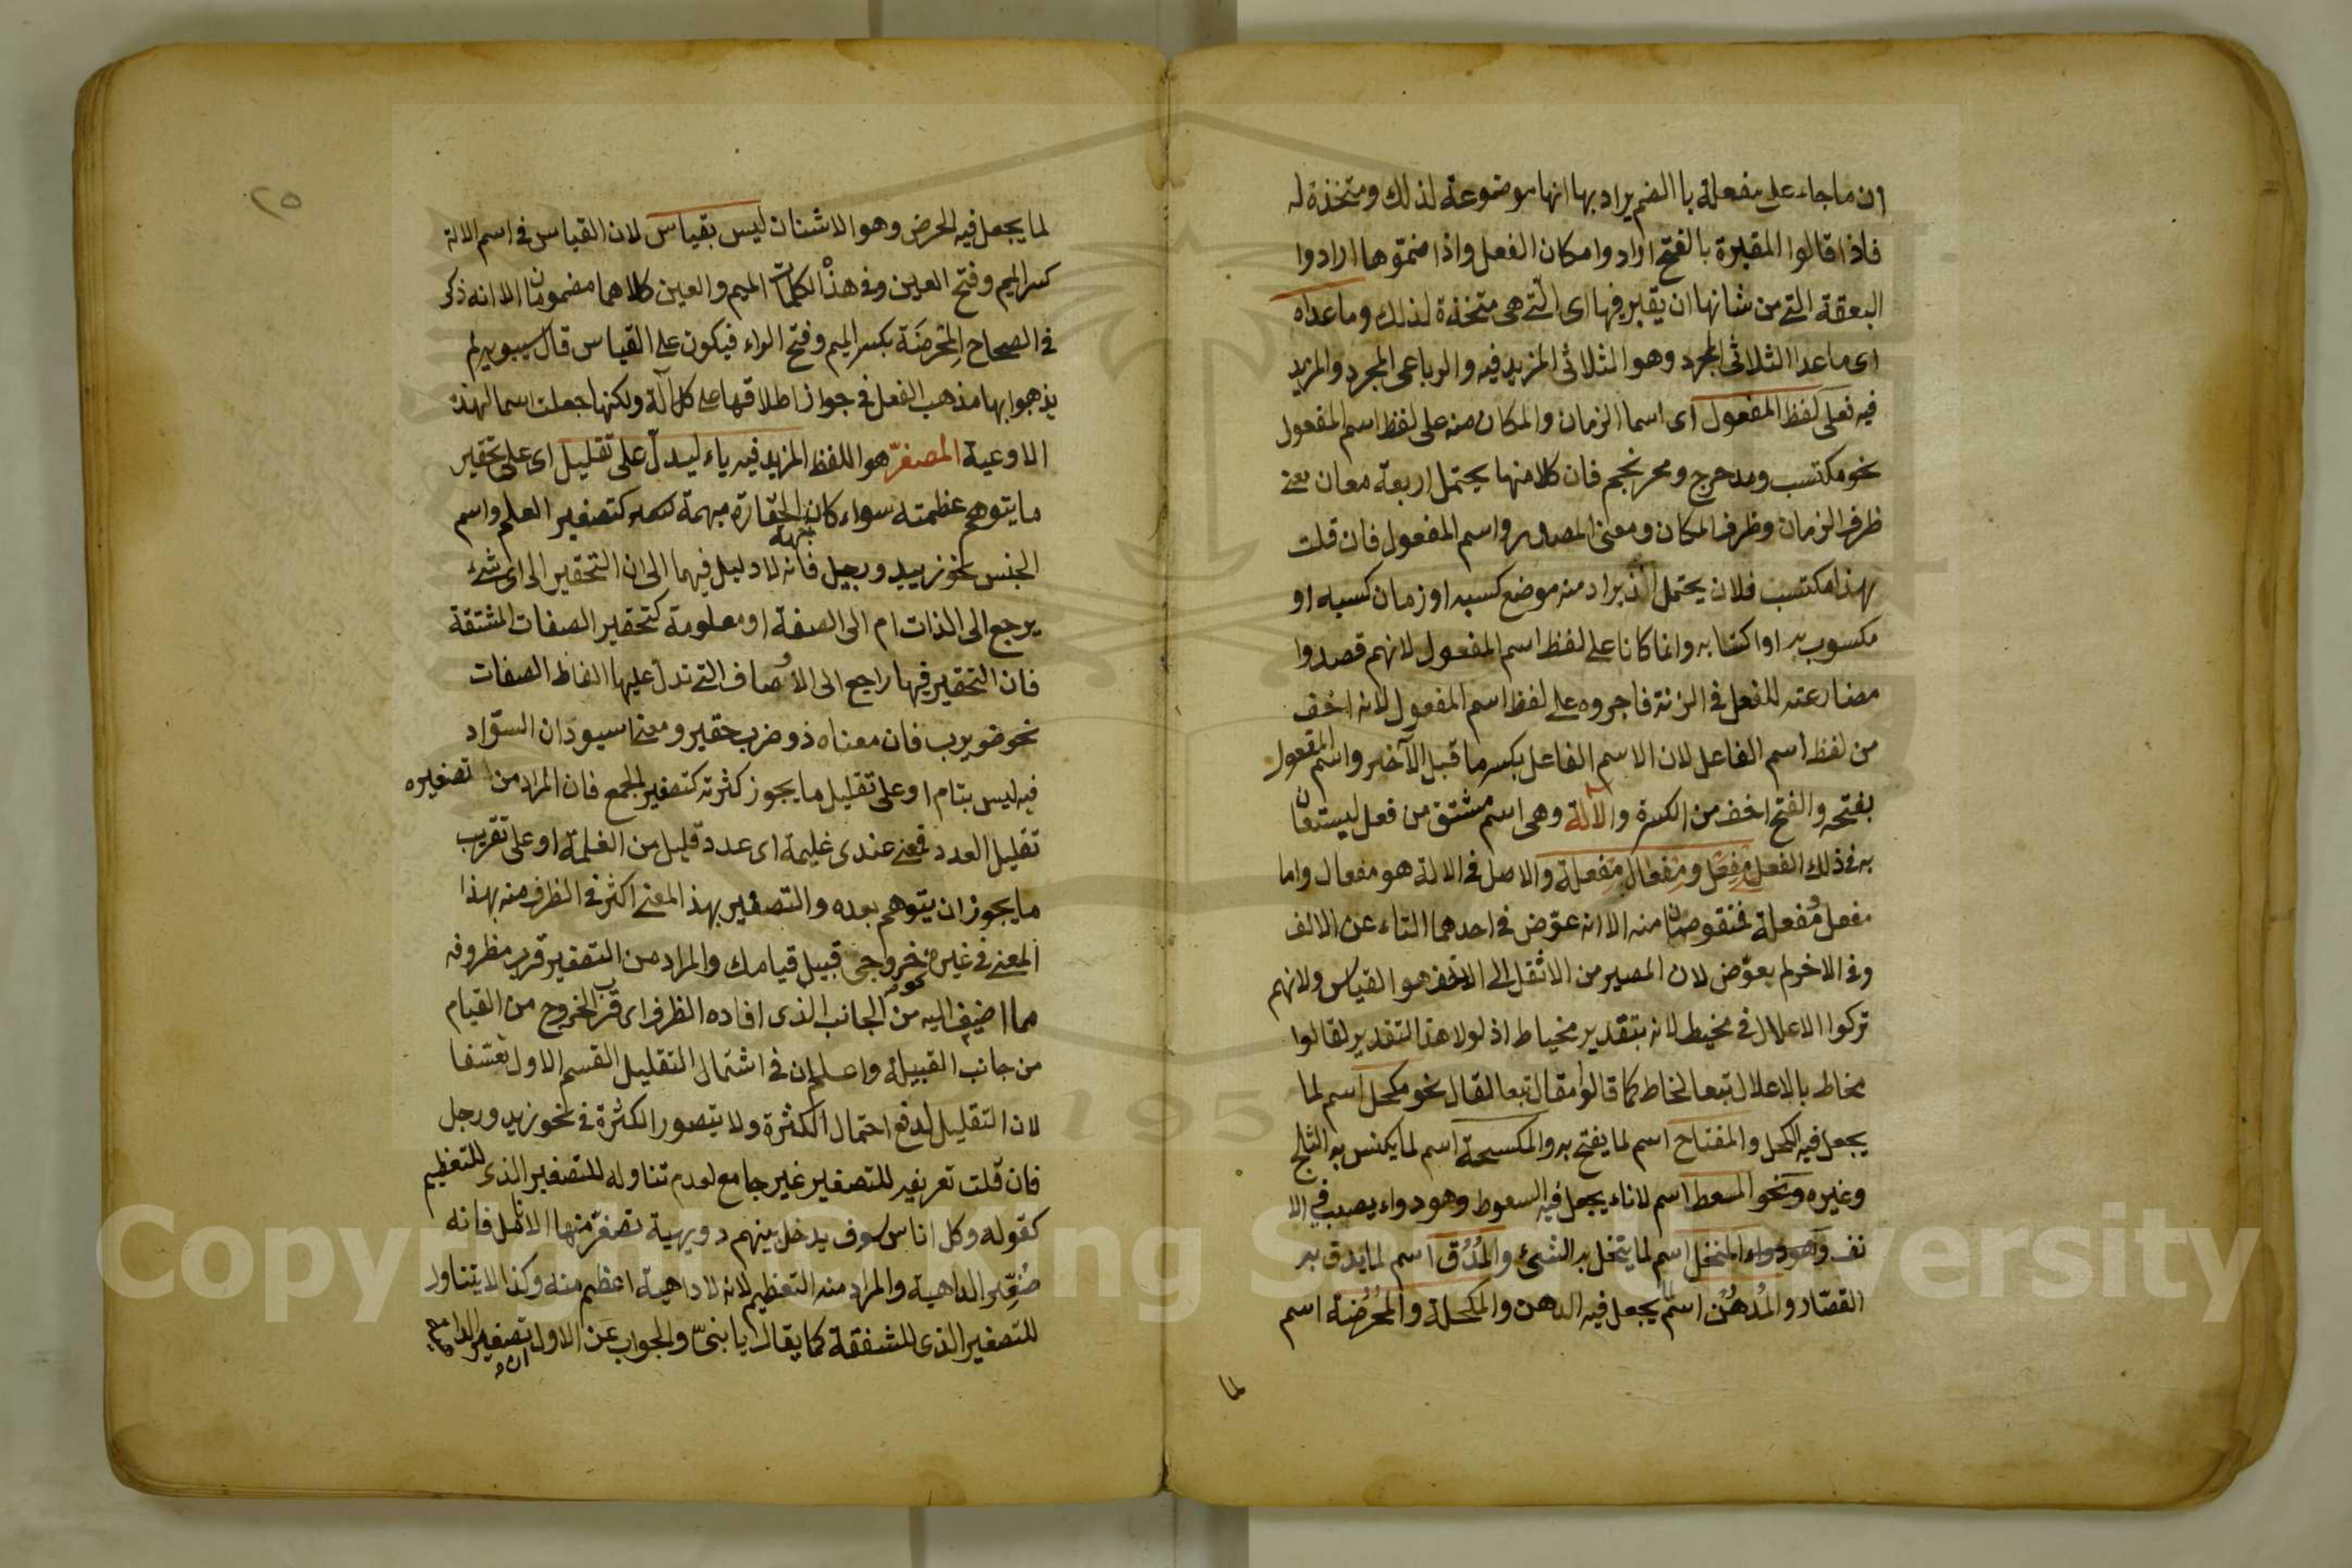 ان ما جاء على مفعلة با الضم يراد بها انها موضوعة لذلك ومتخذة له
فاذا قالوا المقبرة بالفتح ارادوا مكان الفعل واذا ضموها ارادوا
البعقة التے من شانها ان يقبر فيها اى الّتے هى متخذة لذلك وما عداه
اى ما عدا الثلاثى المجرد وهو الثلاثى المزيد فيه والرباعى المجرد والمزيد
فيه فعلى لفظ المفعول اى اسما الزمان والمكان منه على لفظ اسم المفعول
نحو مكتسب ومدحرج ومحرنجم فان كلا منها يحتمل اربعة معان معنے
ظرف الزمان وظرف المكان ومعنى المصدر واسم المفعول فان قلت
بهذا مكتسب فلان يحتمل ان يراد منه موضع كسبه او زمان كسبه او
مكسوب به او اكتسابه وانما كانا على لفظ اسم المفعول لانهم قصدوا
مضارعته للفعل فى الزنة فاجروه على لفظ اسم المفعول لانه اخف
من لفظ اسم الفاعل لان الاسم الفاعل بكسر ما قبل الآخر واسم المفعول
بفتحه والفتح اخف من الكسرة والآلة وهى اسم مشتق من فعل ليستعان
به فى ذلك الفعل مِفعَل ومِفعَال مِفعلة والاصل فى الالة هو مفعال واما
مفعل ومفعلة فمنقوصان منه الا انه عوّض فى احدهما التاء عن الالف
وفى الاخر لم يعوّض لان المصير من الاثقل الى الاخف هو القياس ولانهم
تركوا الاعلال فى مخيط لانه بتقدير مخياط اذ لولا هذا التقدير لقالوا
مخاط بالاعلال تبعا لخاط كما قالوا مقال تبعا لقال نحو مكحل اسم لما
يجعل فيه الكحل والمفتاح اسم لما يفتح به والمكسحة اسم لما يكنس به الثلج
وغيره ونحو المسعط اسم لاناء يجعل فيه السعوط وهو دواء يصب فى الا
نف وهو دواء المنخل اسم لما ينخل به الشئ والمُدُق اسم لما يدق به
القصّار والمُدهُن اسم لما يجعل فيه الدهن والمكحلة والمُحُرُضة اسم
لما
٢٥
لما يجعل فيه الحرض وهو الاشنان ليس بقياس لان القياس فى اسم الالة
كسر الميم وفتح العين وفى هذه الكلمات الميم والعين كلاهما مضمومان الا انه ذكر
فى الصحاح المِحرَضَة بكسر الميم وفتح الراء فيكون على القياس قال سيبويه لم
يذهبوا بها مذهب الفعل فى جواز اطلاقها على كل آلة ولكنها جعلت اسما لهذه
الاوعية المصغّر هو اللفظ المزيد فيه ياء ليدلّ على تقليل اى على تحقير
ما يتوهم عظمته سواء كان الحقارة مبهمة كتصغير العلم واسم
الجنس نحو زييد ورجيل فانه لا دليل فيهما الى ان التحقير الى اى شئ
يرجع الى الذات ام الى الصفة او معلومة كتحقير الصفات المشتقة
فان التحقير فيها راجع الى الاوصاف التے تدل عليها الفاظ الصفات
نحو ضويرب فان معناه ذو ضرب حقير ومعنى اسيود ان السوّاد
فيه ليس بتام او على تقليل ما يجوز كثرته كتصغير الجمع فان المراد من تصغيره
تقليل العدد فمعنے عندى غليمة اى عدد قليل من الغلمة او على تقريب
ما يجوز ان يتوهم بعده والتصغير بهذ المعنے اكثر فى الظرف منه بهذا
المعنے فى غيره نحو خروجى قبيل قيامك والمراد من التصغير قرب مظروفه
مما اضيف اليه من الجانب الذى افاده الظرف اى قرب الخروج من القيام
من جانب القبيلة واعلم ان فى اشتمال التقليل القسم الاول تعسّفا
لان التقليل لدفع احتمال الكثرة ولا يتصور الكثرة فى نحو زيد ورجل
فان قلت تعريفه للتصغير غير جامع لعدم تناوله للتصغير الذى للتعظيم
كقوله وكل اناس سوف يدخل بينهم دويهية تصفرّ منها الانامل فانه
صُغّر الداهية والمراد منه التعظيم لانه لا داهية اعظم منه وكذا لا يتناول
للتصغير الذى للشفقة كما يقال يا بنىّ والجواب عن الاول ان تصغير الداهية
Copyright © King Saud University
195